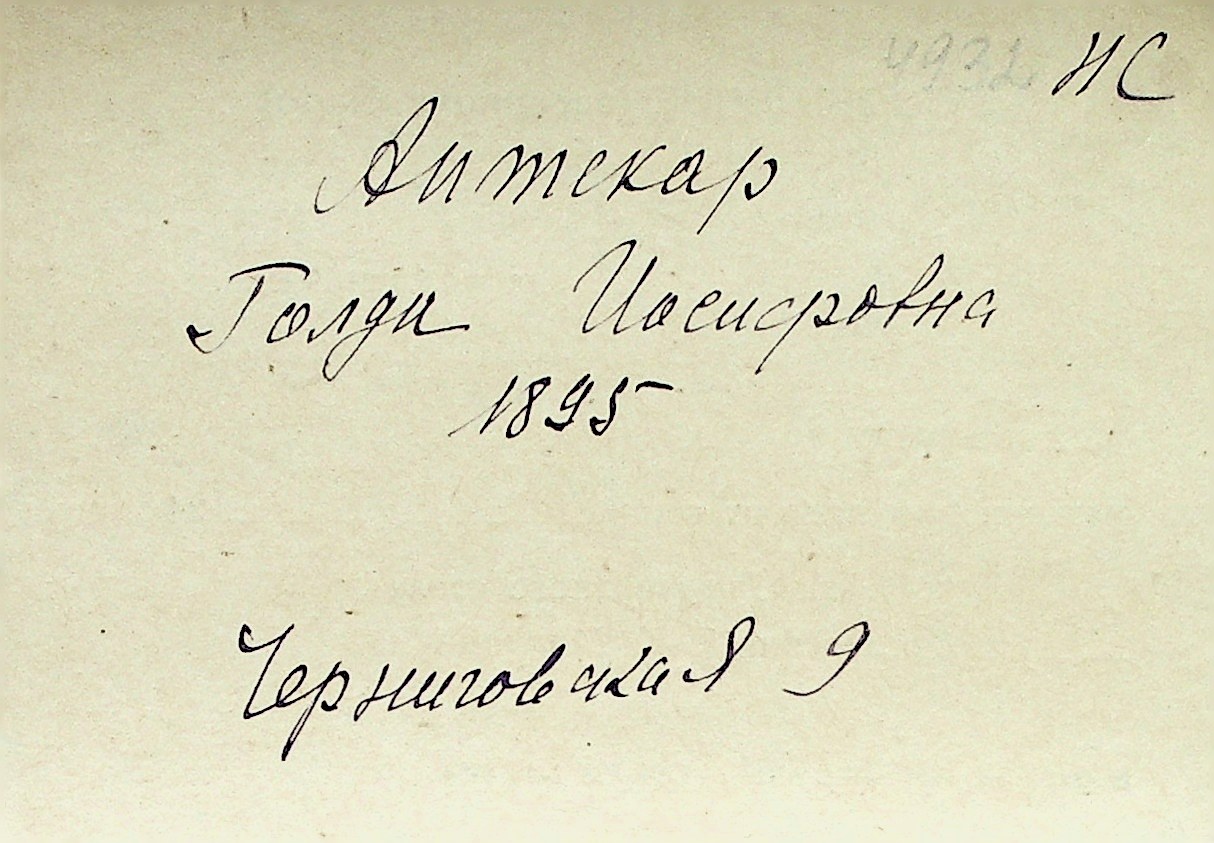 4932 НС
Аптекар
Голди Иосифовна
1895
Черниговская 9